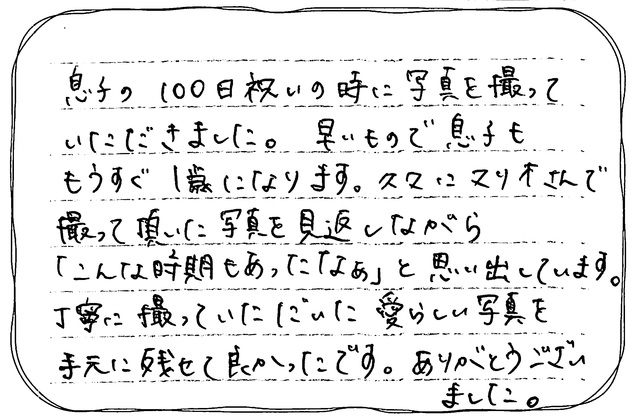 息子の100日祝いの時に写真を撮って
いただきました。早いもので息子も
もうすぐ1歳になります。久々にスリオさんで
撮って頂いた写真を見返しながら
「こんな時期もあったなぁ」と思い出しています。
丁寧に撮っていただいた愛らしい写真を
手元に残せて良かったです。ありがとうござい
ました。